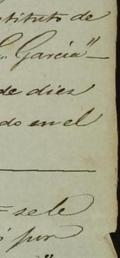 stituto de
García"
de diez
do en el
= se le
por